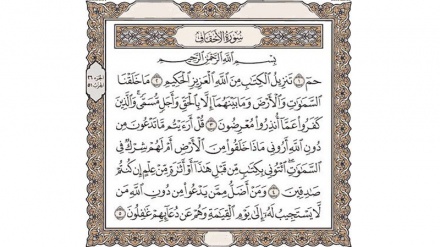 سُورَةُ الأَحْقَافِ
الجزء ٢٦
الحزب ٥١
بِسْمِ اللَّهِ الرَّحْمَٰنِ الرَّحِيمِ
حمٓ ١ تَنزِيلُ الْكِتَٰبِ مِنَ اللَّهِ الْعَزِيزِ الْحَكِيمِ ٢ مَا خَلَقْنَا
السَّمَٰوَٰتِ وَالْأَرْضَ وَمَا بَيْنَهُمَا إِلَّا بِالْحَقِّ وَأَجَلٍ مُّسَمًّى وَالَّذِينَ
كَفَرُوا عَمَّا أُنذِرُوا مُعْرِضُونَ ٣ قُلْ أَرَءَيْتُم مَّا تَدْعُونَ مِن
دُونِ اللَّهِ أَرُونِي مَاذَا خَلَقُوا مِنَ الْأَرْضِ أَمْ لَهُمْ شِرْكٌ فِي
السَّمَٰوَٰتِ ائْتُونِي بِكِتَٰبٍ مِّن قَبْلِ هَٰذَا أَوْ أَثَٰرَةٍ مِّنْ عِلْمٍ إِن كُنتُمْ
صَٰدِقِينَ ٤ وَمَنْ أَضَلُّ مِمَّن يَدْعُوا مِن دُونِ اللَّهِ مَن
لَّا يَسْتَجِيبُ لَهُ إِلَىٰ يَوْمِ الْقِيَٰمَةِ وَهُمْ عَن دُعَائِهِمْ غَٰفِلُونَ ٥